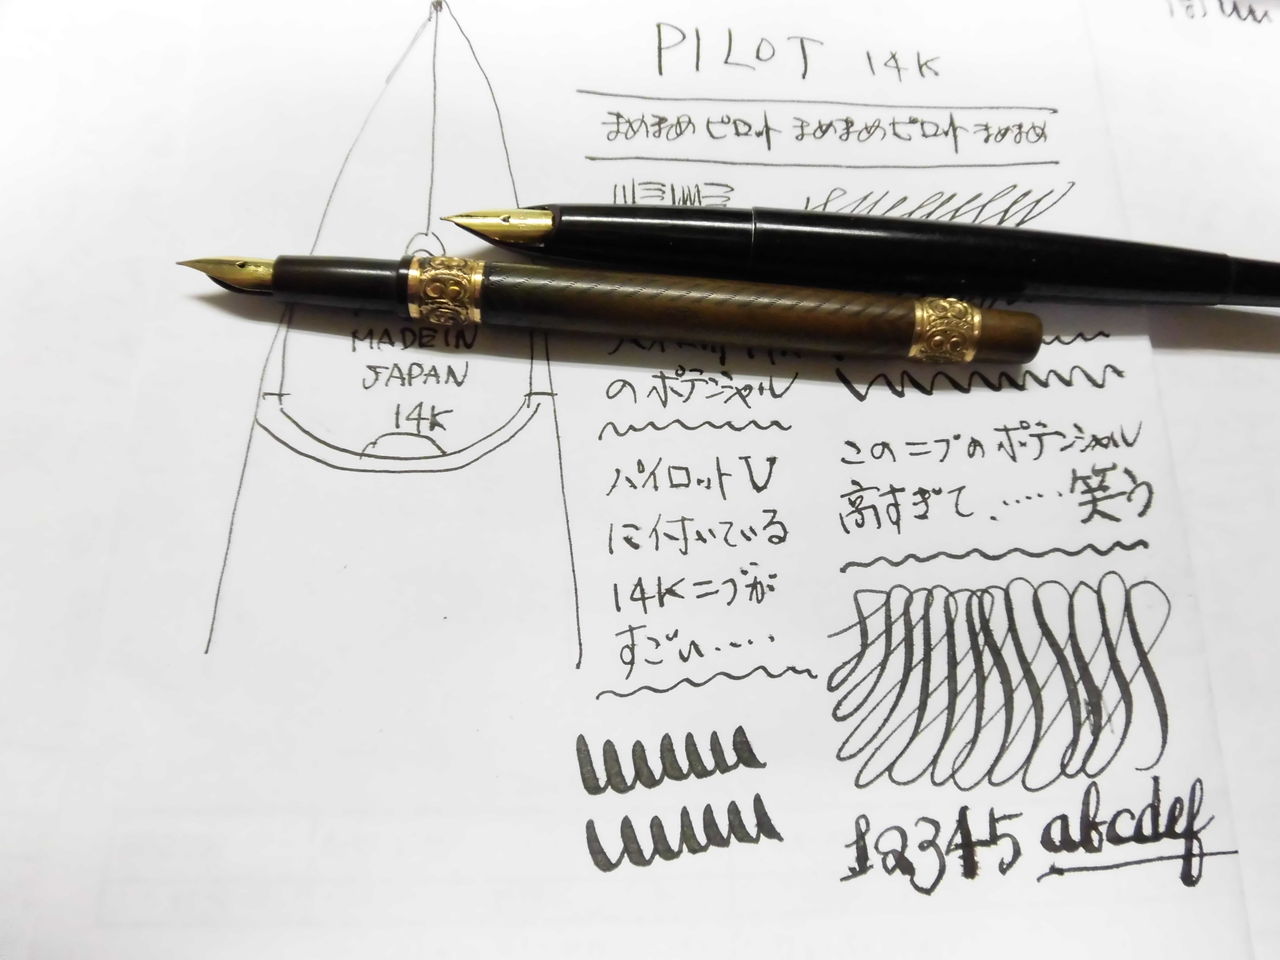 PILOT 14K
まめまめ ピロット まめまめ ピロット まめまめ
MADE IN
JAPAN
14K
のポテンシャル
パイロットV
に付いている
14Kニブが
すごい.....
このニブのポテンシャル
高すぎて......笑う
12345 abcdef